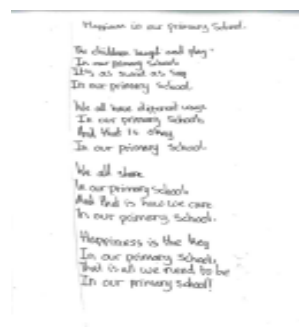 Happiness in our primary School.
The children laugh and play
In our primary School
It's as sweet as
In our primary School.
We all have different ways
In our primary School,
And that is okay
In our primary School.
We all share
In our primary School
And that is how we care
In our primary School.
Happiness is the key
In our primary School,
That is all we need to be
In our primary School!